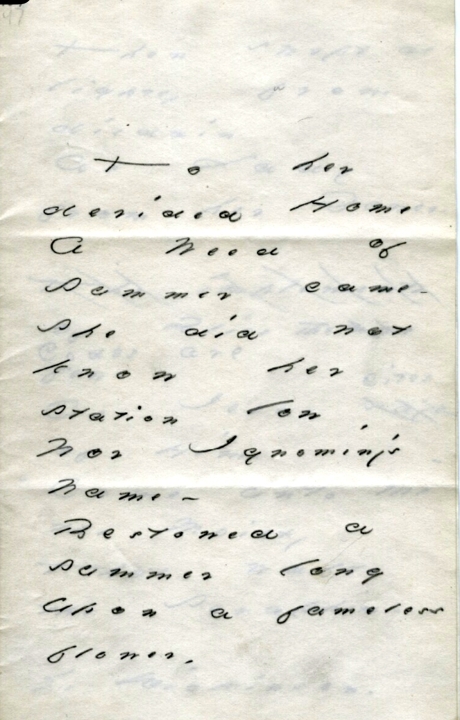 To her
derided Home
A Weed of
Summer came -
She did not
know her
station low
Nor Ignominy's
Name -
Bestowed a
summer long
Upon a fameless
flower,